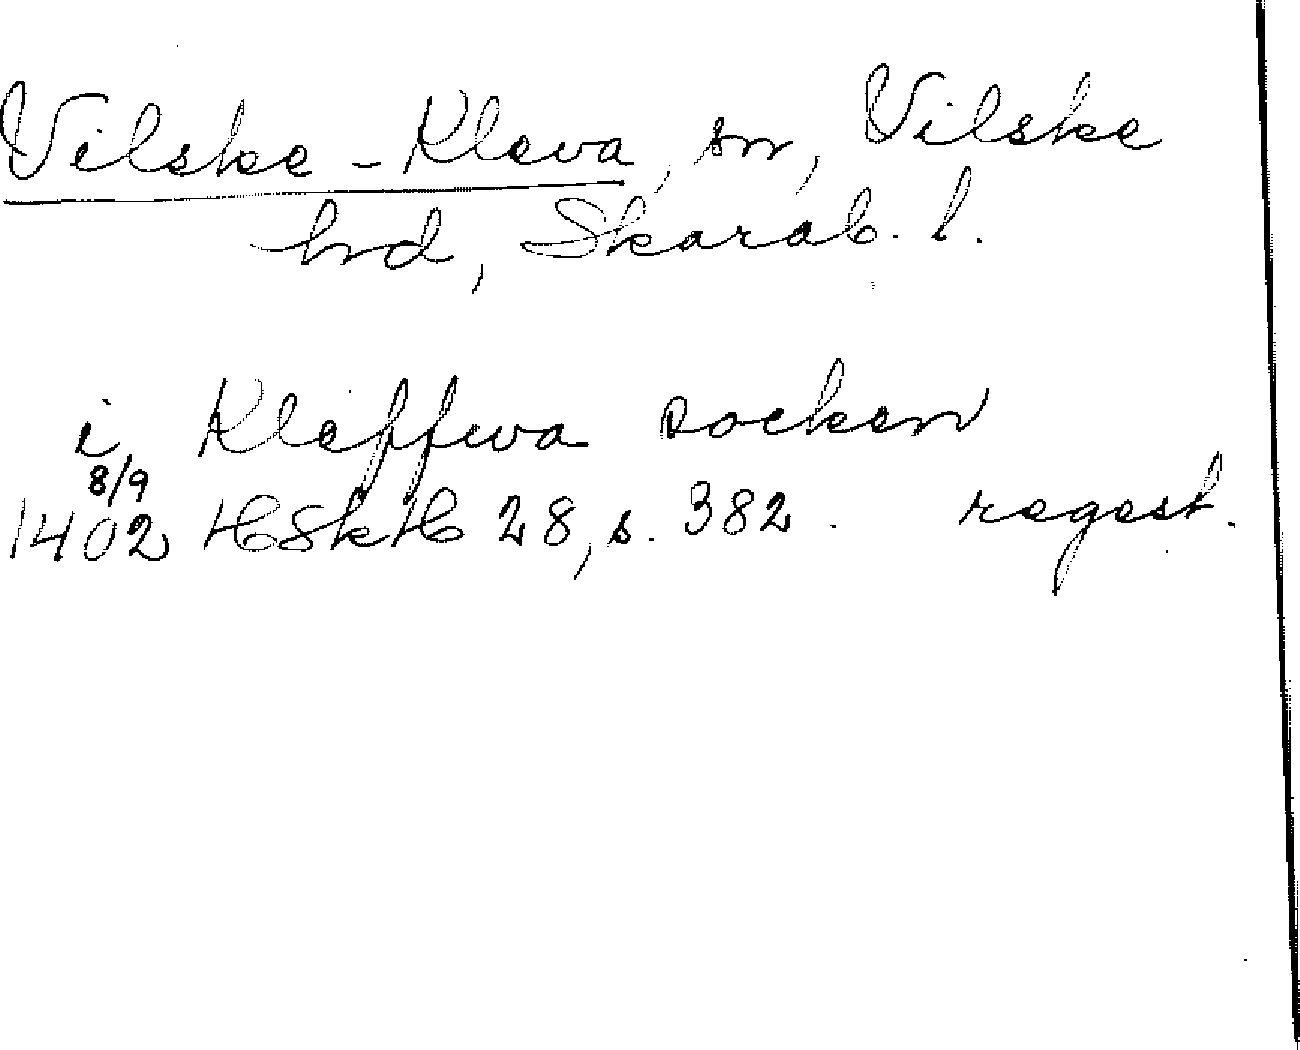 Vilske-Kleva, sn, Vilske
hd, Skarab. l.
i Kleffwa socken
8/9
1402 HSkH 28, s. 382. regest.